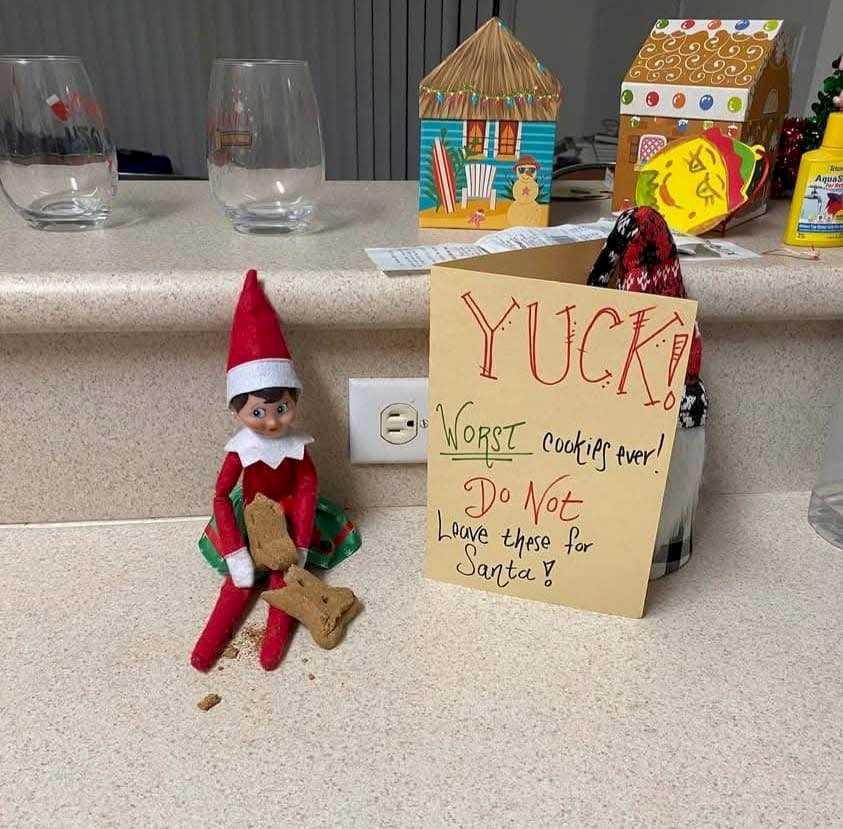 YUCK!
WORST cookies ever!
Do Not
Leave these for
Santa!